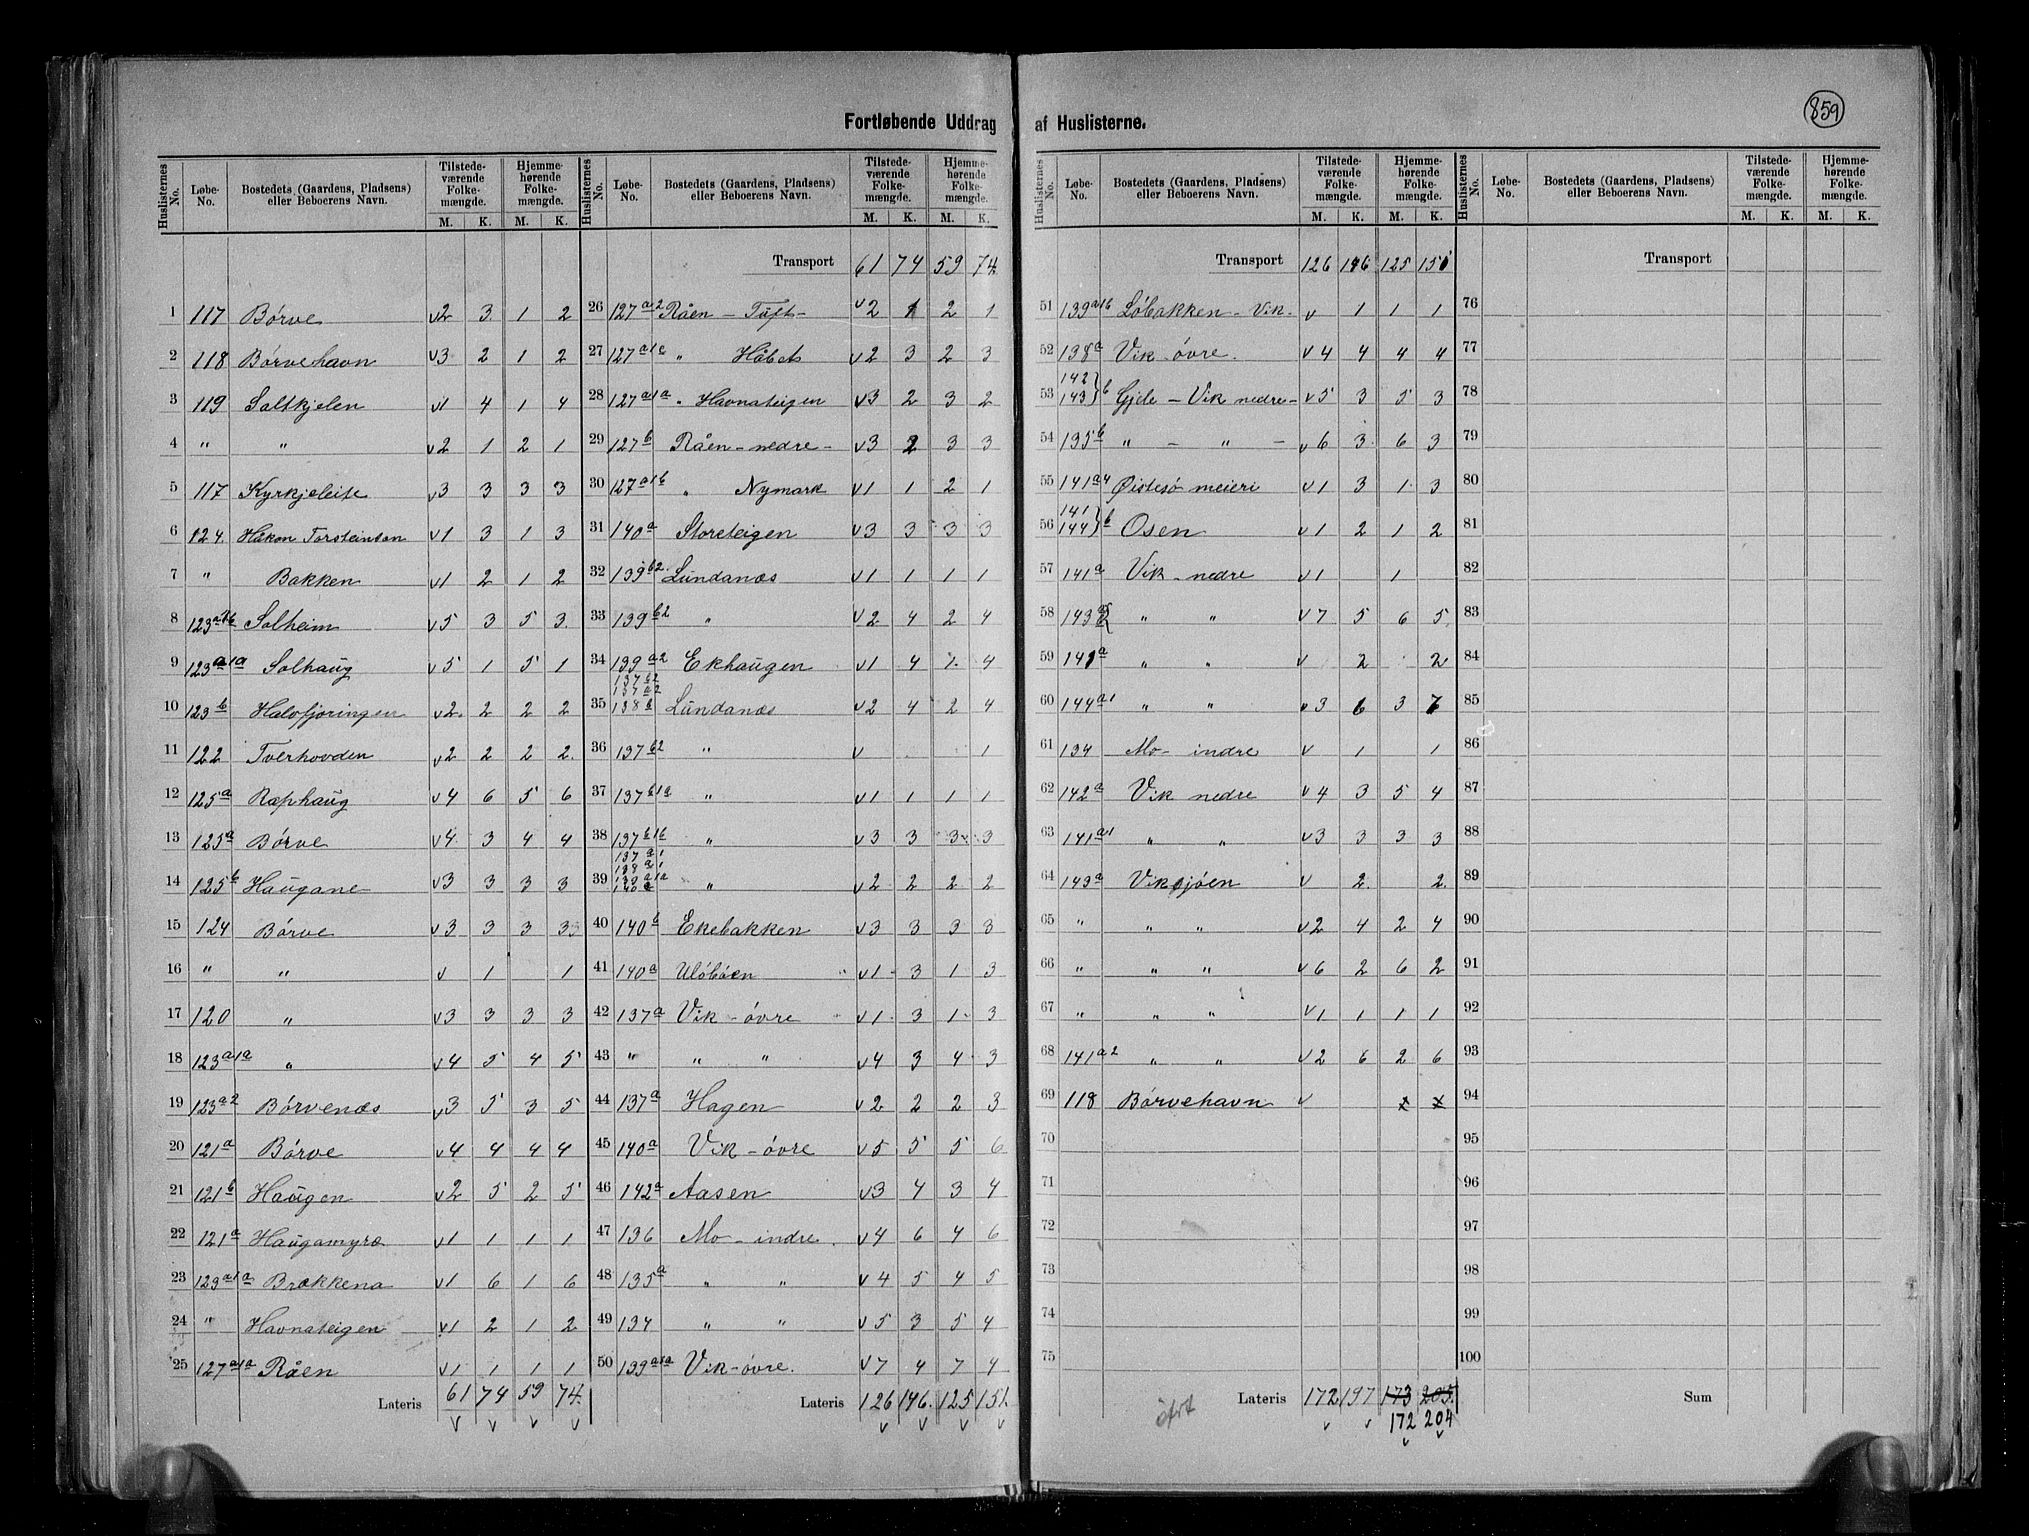 859
Fortløbende Uddrag af Huslisterne.
Huslisternes No. Løbe-No. Bostedets (Gaardens, Pladsens) eller Beboerens Navn. Tilstedeværende Folkemængde. M. K. Hjemmehørende Folkemængde. M. K.
1 117 Börve v2 3 1 2
2 118 Börvehavn v3 2 1 2
3 119 Saltkjelen v1 4 1 4
4 " " v2 1 2 1
5 117 Kyrkjeleite v3 3 3 3
6 124 Håkon Torsteinson v1 3 1 3
7 " Bakken v1 2 1 2
8 Solheim v5 3 5 3
9 123a1a Solhaug v5 1 5 1
10 123b v2 2 2 2
11 122 Tverhovden v2 2 2 2
12 125a Ræphaug v4 6 5 6
13 125a Börve v4 3 4 4
14 125b Haugane v3 3 3 3
15 124 Börve v3 3 3 3
16 " " v 1 1
17 120 " v3 3 3 3
18 123a1a " v4 5 4 5
19 123a2 Börvenæs v3 5 3 5
20 121a Börve v4 4 4 4
21 121b Haugen v2 5 2 5
22 121a Haugamyræ v1 1 1 1
23 123a1a Brækkena v1 6 1 6
24 " Havnateigen v1 2 1 2
25 127a1a Råen v1 1 1 1
Lateris 61 74 59 74
Huslisternes No. Løbe-No. Bostedets (Gaardens, Pladsens) eller Beboerens Navn. Tilstedeværende Folkemængde. M. K. Hjemmehørende Folkemængde. M. K.
Transport 61 74 59 74
26 127a2 Råen - Tuft- v2 1 2 1
27 " Håbet v2 3 2 3
28 127a1a " Havnateigen v3 2 3 2
29 127b Råen-nedre- v3 2 3 3
30 127a1b " Nymark v1 1 2 1
31 140a Storeteigen v3 3 3 3
32 139b2 Lundanæs v1 1 1 1
33 139b2 " v2 4 2 4
34 139a2 Ekhaugen v1 4 1 4
35 137b2 137a2 138b Lundanæs v2 4 2 4
36 137b2 " v 1
37 137b1a " v1 1 1 1
38 137b1b " v3 3 3 3
39 137a1 138a1 139a1a " v2 2 2 2
40 140b Ekebakken v3 3 3 3
41 140a v1 3 1 3
42 137a Vik-övre v1 3 1 3
43 " " " v4 3 4 3
44 137a Hagen v2 2 2 3
45 140a Vik-övre v5 5 5 6
46 142a Aasen v3 4 3 4
47 136 Mo-indre v4 6 4 6
48 135a " " v4 5 4 5
49 134 " " v5 3 5 4
50 139a1a Vik-övre. v7 4 7 4
Lateris 126 146 125 151
Huslisternes No. Løbe-No. Bostedets (Gaardens, Pladsens) eller Beboerens Navn. Tilstedeværende Folkemængde. M. K. Hjemmehørende Folkemængde. M. K.
Transport 126 146 125 151
51 139a1b Löbakken-Vik. v 1 1 1
52 138a Vik-övre. v4 4 4 4
53 142 143} b Gjele - Vik nedre- v5 3 5 3
54 135b " - " - v6 3 6 3
55 141a4 Östesö meieri v1 3 1 3
56 141 144} b Osen v1 2 1 2
57 141a Vik-nedre v1 1
58 " " v7 5 6 5
59 141a " " v 2 2
60 144a1 " " v3 6 3 7
61 134 Mo-indre v 1 1
62 142a Vik nedre v4 3 5 4
63 141a1 " " v3 3 3 3
64 143a Viksjöen v 2 2
65 " " " v2 4 2 4
66 " " " v6 2 6 2
67 " " " v1 1 1 1
68 141a2 " " v2 6 2 6
69 118 Börvehavn v x x
70
71
72
73
74
75
öfrt Lateris 172 197 173 205
172 204
Huslisternes No. Løbe-No. Bostedets (Gaardens, Pladsens) eller Beboerens Navn. Tilstedeværende Folkemængde. M. K. Hjemmehørende Folkemængde. M. K.
Transport
76
77
78
79
80
81
82
83
84
85
86
87
88
89
90
91
92
93
94
95
96
97
98
99
100
Sum